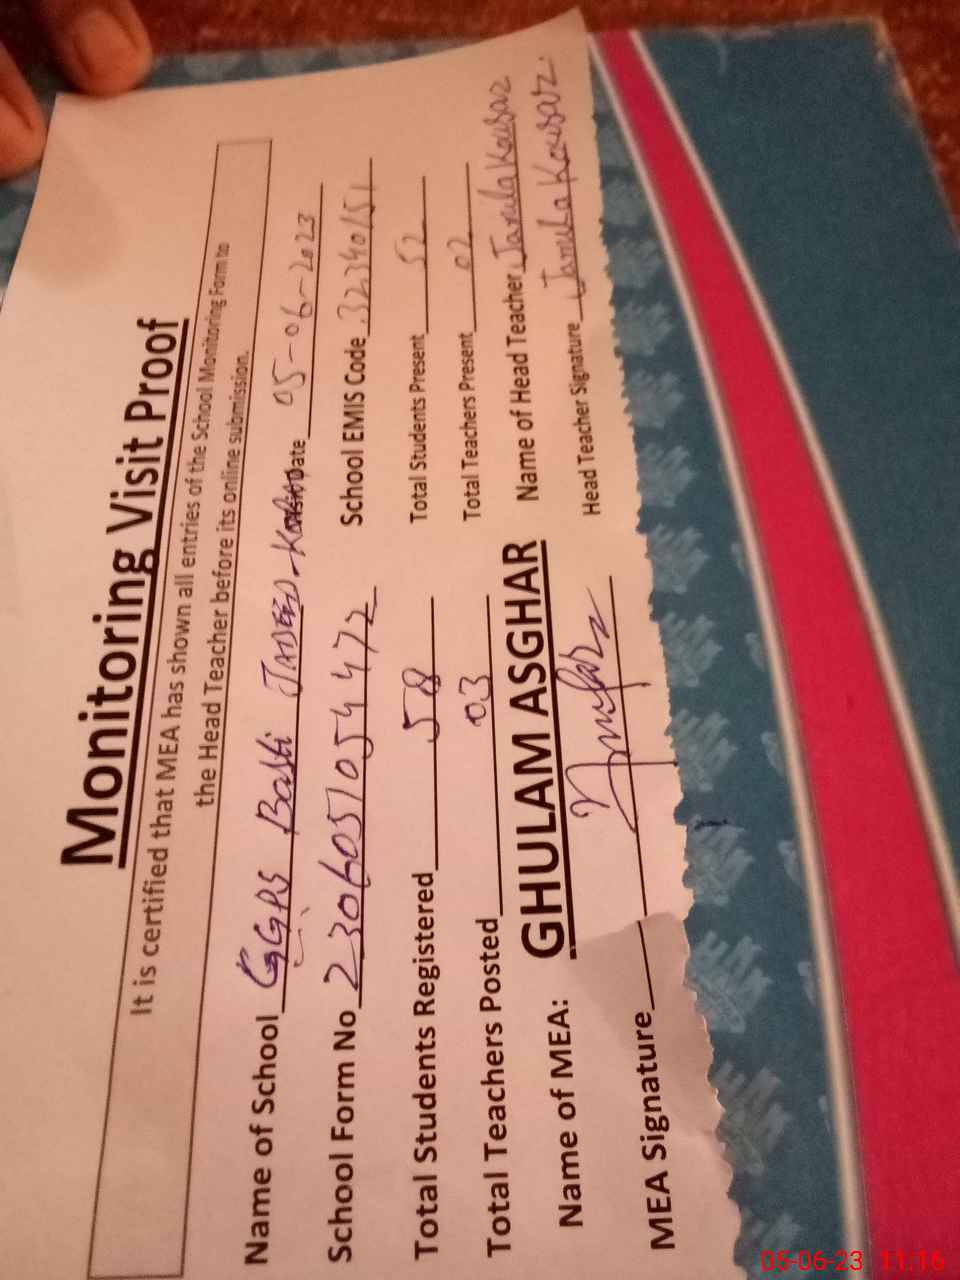 Monitoring Visit Proof
It is certified that MEA has shown all entries of the School Monitoring Form to
the Head Teacher before its online submission.
Name of School GGPS Basti JADEED Date 05-06-2023
School Form No 2306051054472 School EMIS Code 32340151
Total Students Registered 58 Total Students Present 52
Total Teachers Posted 03 Total Teachers Present 02
Name of MEA: GHULAM ASGHAR Name of Head Teacher Jamila Kousar
MEA Signature Head Teacher Signature Jamila Kousar
05-06-23 11:16